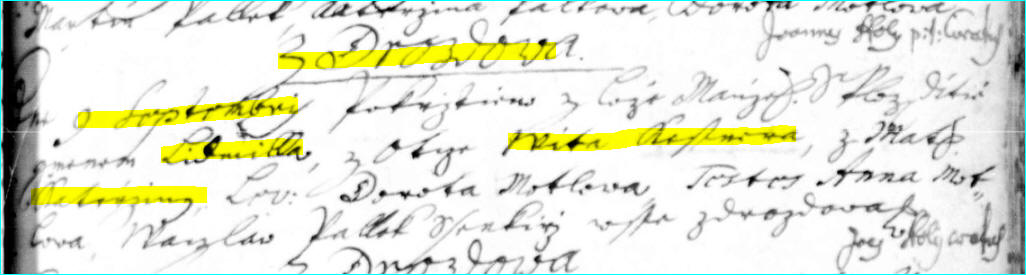 Martin Pallek Katerzina Paltowa, Dorota Motlowa
Joannes Holy p:t: Curatus
z Drozdowa.
9 Septembris Pokrztieno z loże Manżel: Plozditie
gmenem Lidmilla, z Otcze Wita Kastnera, z Matky
Katerziny, Lev: Dorota Motlowa Testes Anna Mot
lowa, Waczlav Pallek Ssenkirz wsse z drozdowa
Joes Holy curatus
z Drozdowa